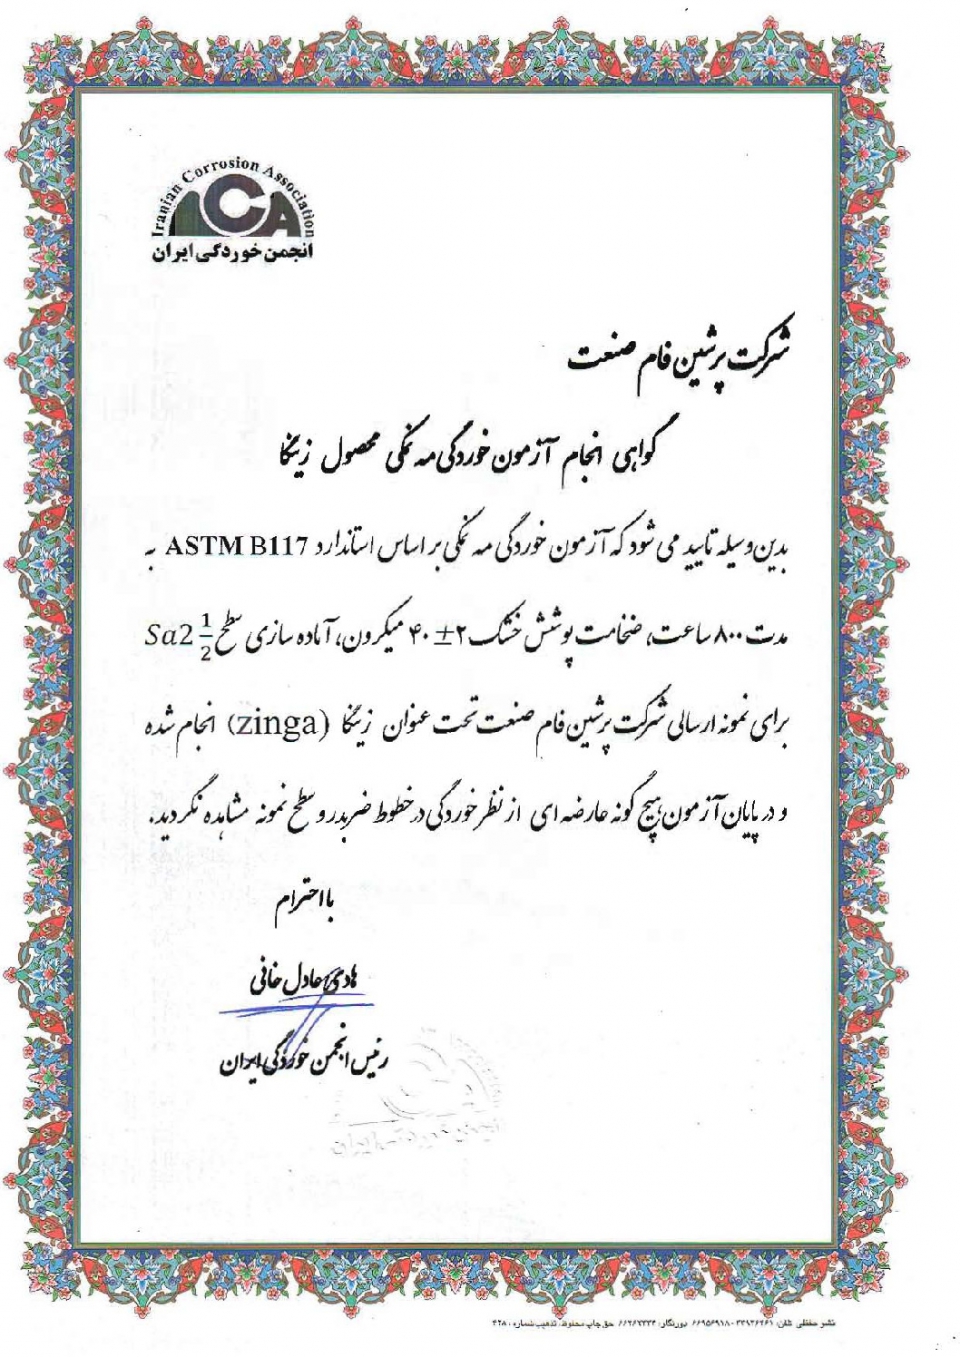 Iranian Corrosion Association
ICA
انجمن خوردگی ایران
شرکت پرشین فام صنعت
گواهی انجام آزمون خوردگی مه نمکی محصول زینگا
بدین وسیله تایید می شود که آزمون خوردگی مه نمکی بر اساس استاندارد ASTM B117 به
مدت ۸۰۰ ساعت، ضخامت پوشش خشک ۲±۴۰ میکرون، آماده سازی سطح Sa2 1/2
برای نمونه ارسالی شرکت پرشین فام صنعت تحت عنوان زینگا (zinga) انجام شده
و در پایان آزمون هیچ گونه عارضه ای از نظر خوردگی در خطوط ضربدر و سطح نمونه مشاهده نگردید.
با احترام
هادی عادل خانی
رئیس انجمن خوردگی ایران
نشر حفظی تلفن: ۳۳۹۲۶۲۶۱ - ۶۶۹۵۶۹۱۸ دورنگار: ۶۶۲۶۷۳۳۴ حق چاپ محفوظ، تذهیب شماره: ۴۲۸